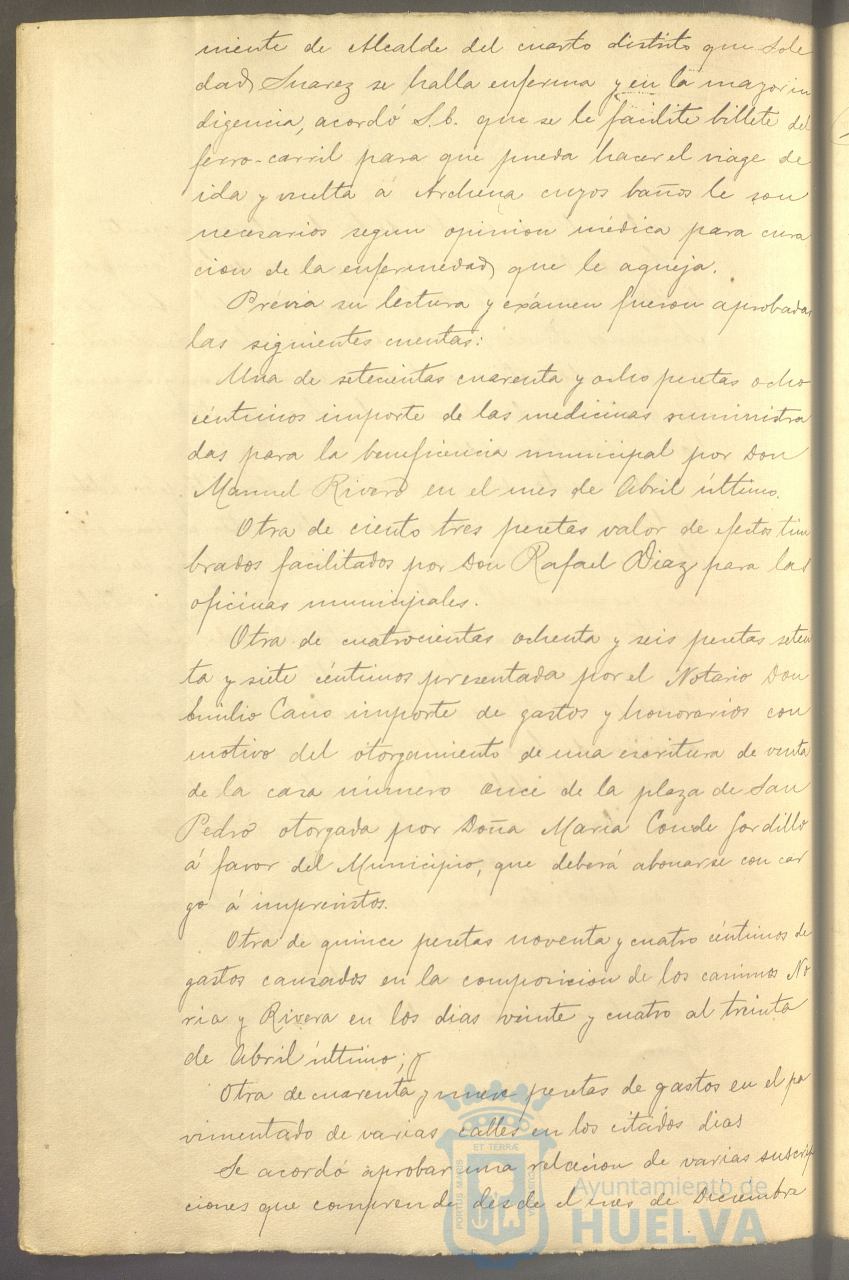 niente de Alcalde del cuarto distrito que Sole
dad Suarez se halla enferma y en la mayor in
digencia, acordó S.E. que se le facilite billete del
ferro-carril para que pueda hacer el viage de
ida y vuelta á Archena cuyos baños le son
necesarios segun opinion médica para cura
cion de la enfermedad que le aqueja.
Prévia su lectura y exámen fueron aprobadas
las siguientes cuentas:
Una de setecientas cuarenta y ocho pesetas ocho
céntimos importe de las medicinas suministra
das para la beneficencia municipal por Don
Manuel Rivero en el mes de Abril último.
Otra de ciento tres pesetas valor de efectos tim
brados facilitados por Don Rafael Diaz para las
oficinas municipales.
Otra de cuatrocientas ochenta y seis pesetas seten
ta y siete céntimos presentada por el Notario Don
Emilio Cano importe de gastos y honorarios con
motivo del otorgamiento de una escritura de venta
de la casa número once de la plaza de San
Pedro otorgada por Doña María Conde Gordillo
á favor del Municipio, que deberá abonarse con car
go á imprevistos.
Otra de quince pesetas noventa y cuatro céntimos de
gastos causados en la composicion de los caminos No
ria y Rivera en los dias veinte y cuatro al treinta
de Abril último; y
Otra de cuarenta y nueve pesetas de gastos en el pa
vimentado de varias calles en los citados dias
Se acordó aprobar una relacion de varias suscrip
ciones que comprende desde el mes de Diciembre
PORTUS MARIS
ET TERRÆ
CUSTODIA
Ayuntamiento de
HUELVA